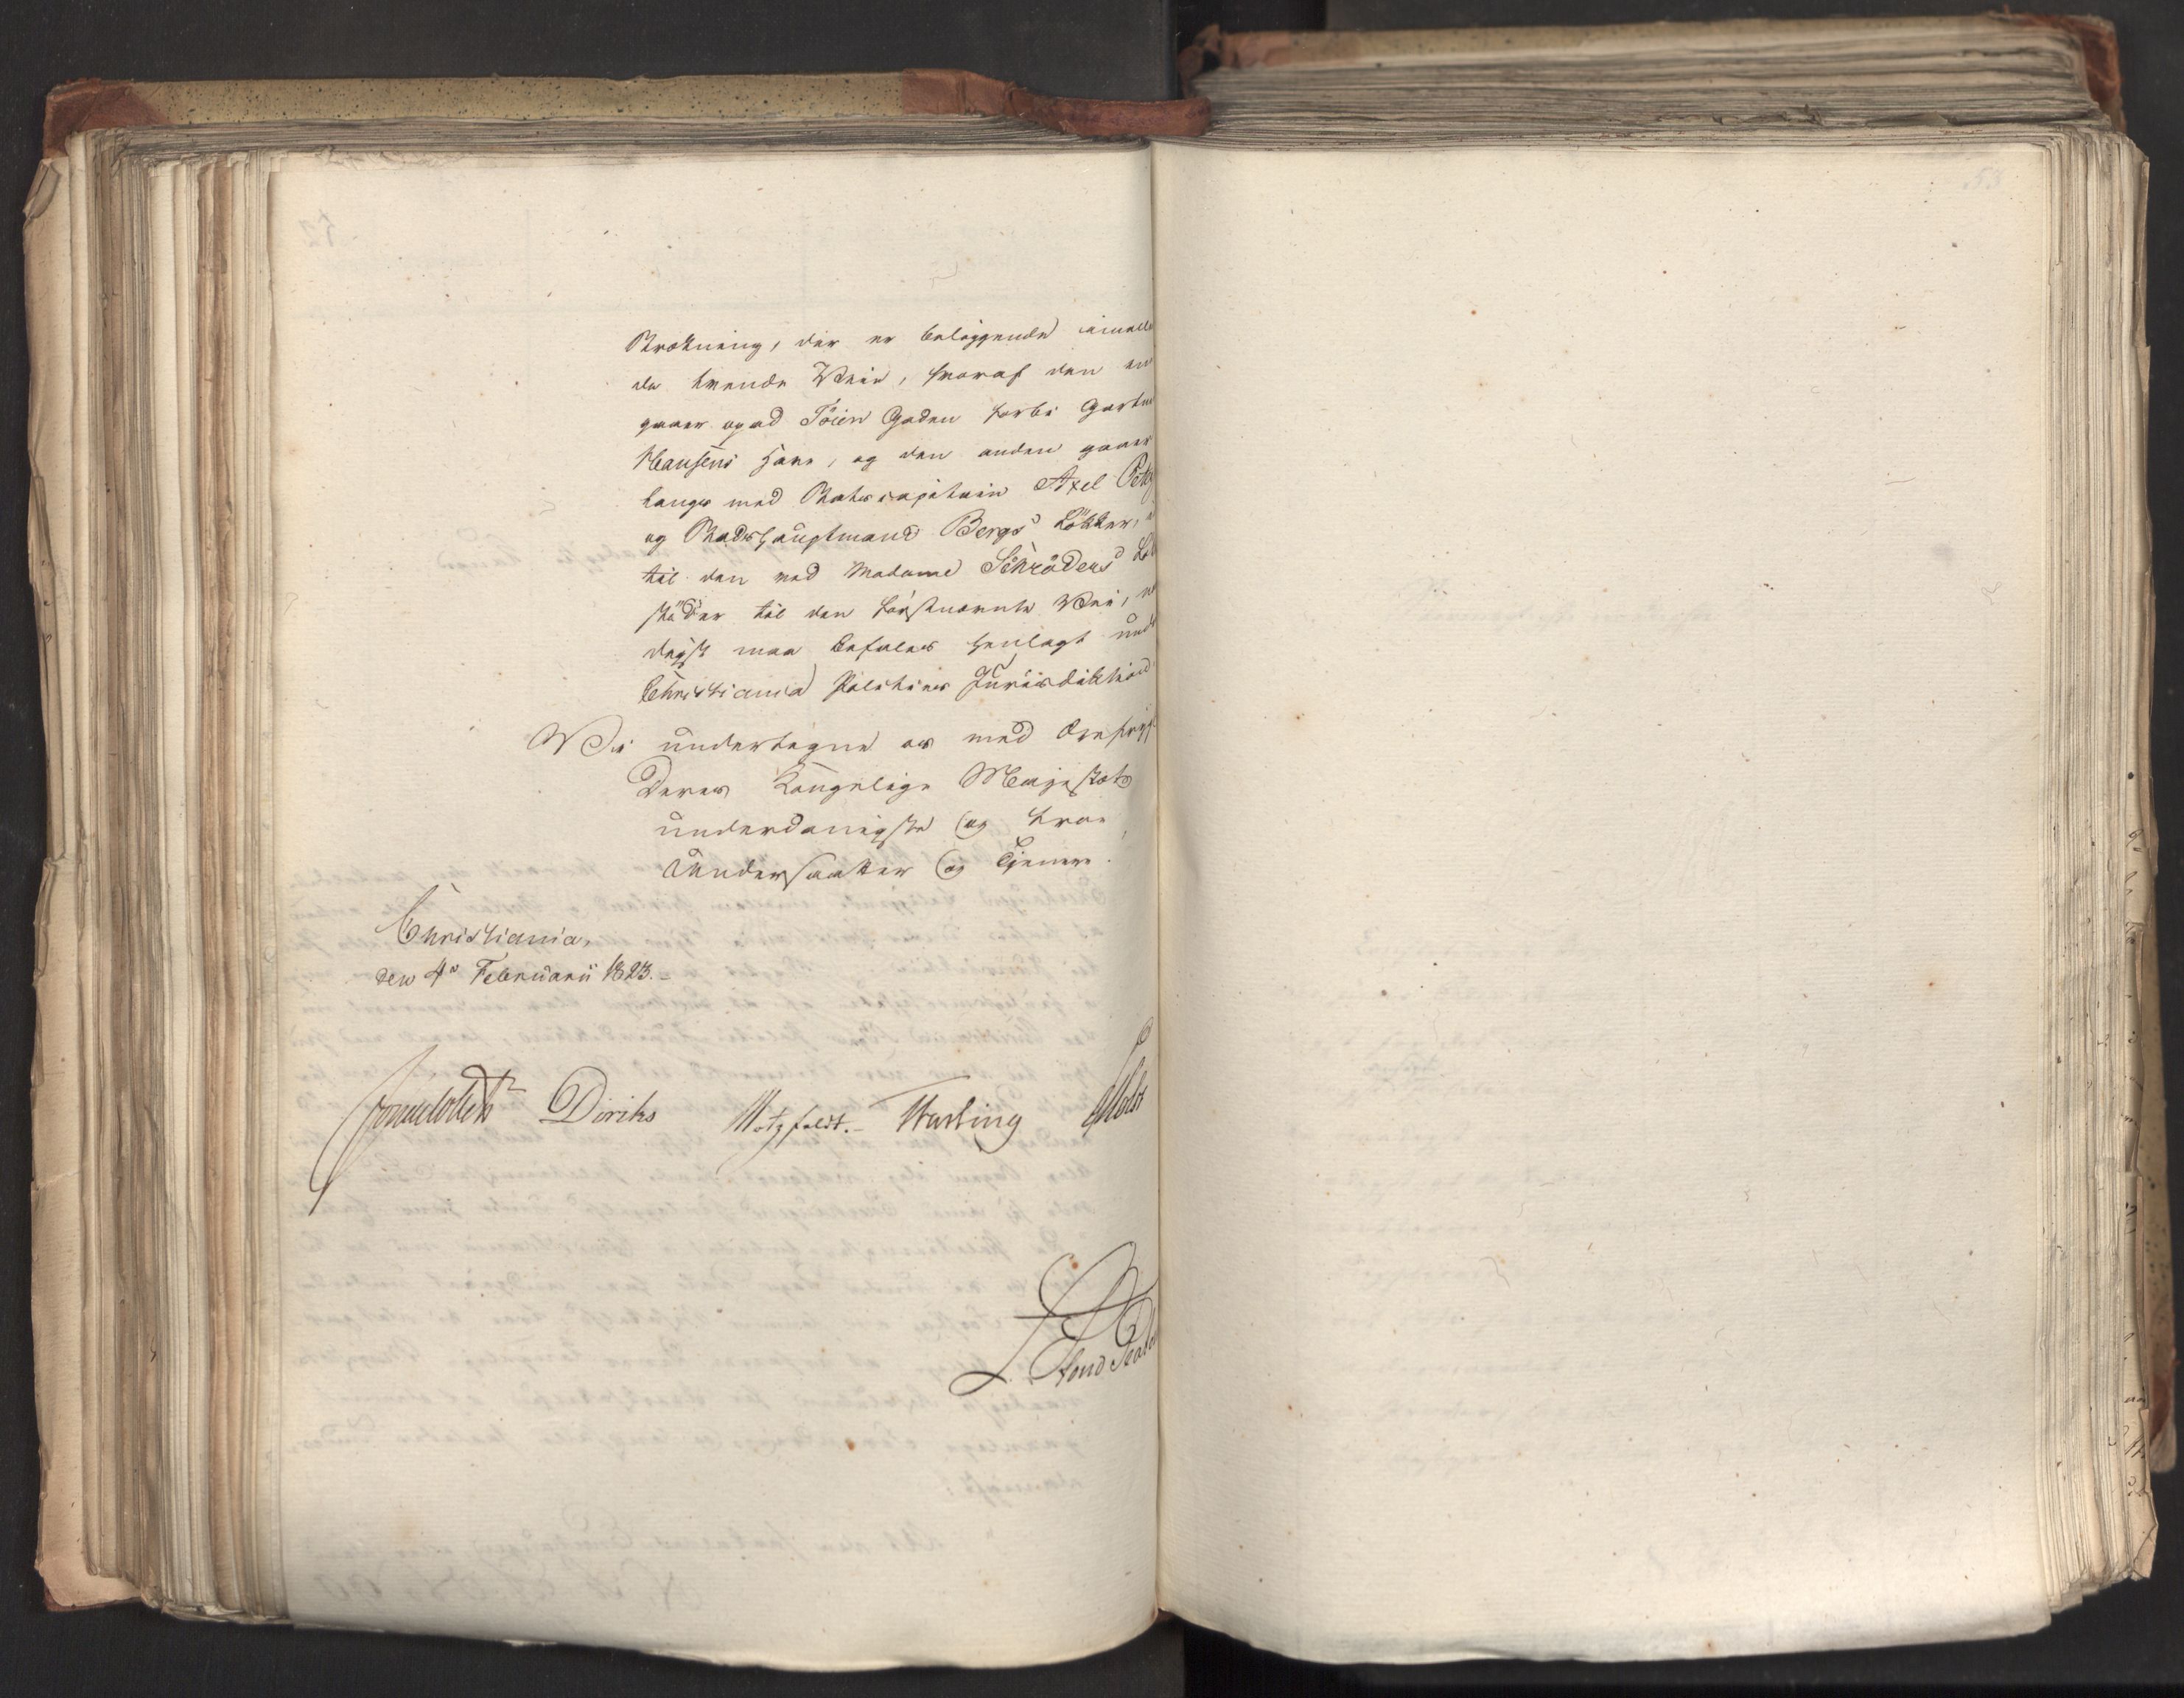 Strækning, der er beliggende imell
de tvende Veie, hvoraf den en
gaaer op ad Töien Gaden forbi Gart
Hansens Have, og den anden gaaer
langs med Stadscapitain Axel Pet
og Stadshauptmand Bergs Lökker,
til den ved Madame Schröders Lök
stöder til den förstnævnte Vei,
digst maa befales henlagt und
Christiania Polities Jurisdiktion.
Vi undertegne os med Ærefrygt
Deres Kongelige Majestæts
underdanigste og troe
Undersaatter og Tjenere.
Christiania,
den 4de Februarii 1823.
Diriks Motzfeldt. Treschow Holst